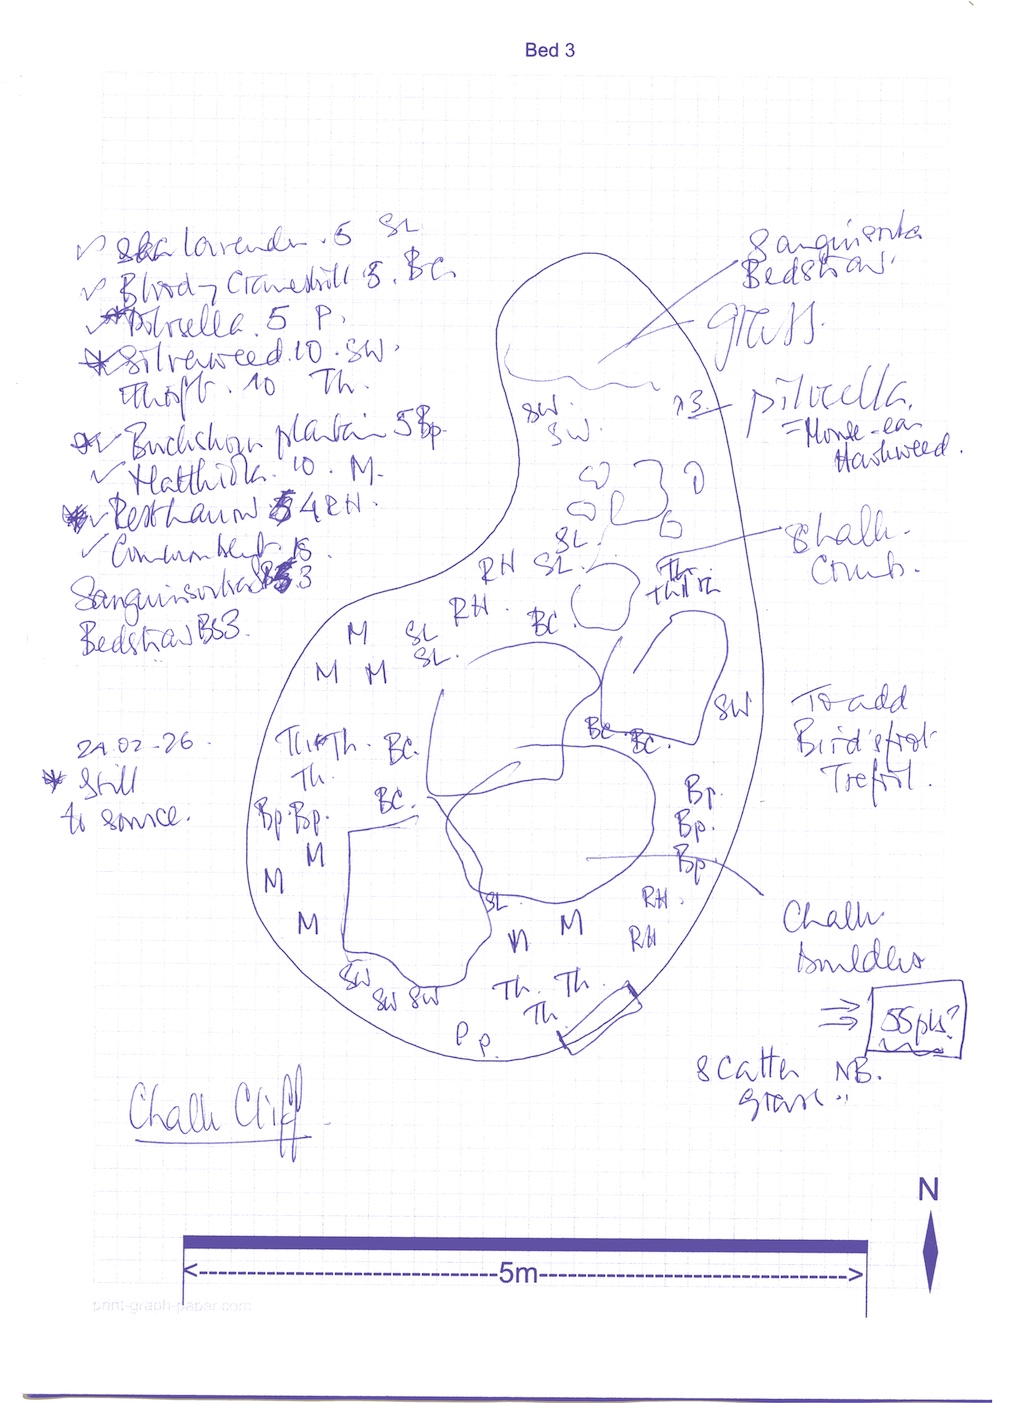 Bed 3
Sea lavender . 5 SL
Bloody Cranesbill 5. BC
Pilosella. 5 P.
Silverweed. 10 . SW.
Thrift . 10 Th.
Buckshorn plantain 5 Bp.
Matthiola. 10 . M.
Restharrow 4 RH.
Common bent . 15
3
Bedstraw BS3.
24.02-26.
* Still
to source.
Sanguisorba
Bedstraw.
grass.
x3.
pilosella.
= Mouse-ear
Hawkweed.
SW.
SW.
SL.
SL.
RH
RH.
BC.
Th.
Th Th
Chalk
Comb.
M
M M
SL
SL.
SW
BC.
BC.
To add
Bird's foot
Trefoil.
Th Th.
Th.
BC.
BC.
Bp. Bp.
Bp.
Bp.
Bp
M
M
M
SL.
M
M
RH.
RH
Chalk
boulders
SW
SW SW
Th. Th.
Th
P
P.
55 pls?
Scatter NB.
Chalk Cliff
N
<------5m------>
print-graph-paper.com